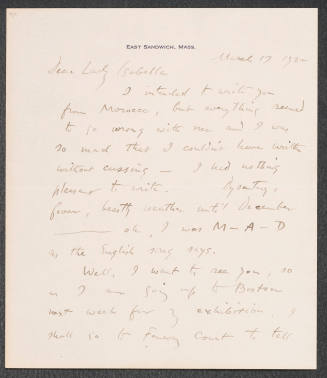 EAST SANDWICH, MASS.
March 17 192
Dear Lady Isabella
I intended to write you
from Morocco, but everything seemed
to go wrong with me and I was
so mad that I couldn't have written
without cussing — I had nothing
pleasant to write. Dysentery,
fever, beastly weather until December
——— oh, I was M-A-D
as the English song says.
Well, I want to see you, so
as I am going up to Boston
next week for my exhibition, I
shall go to Fenway Court to tell